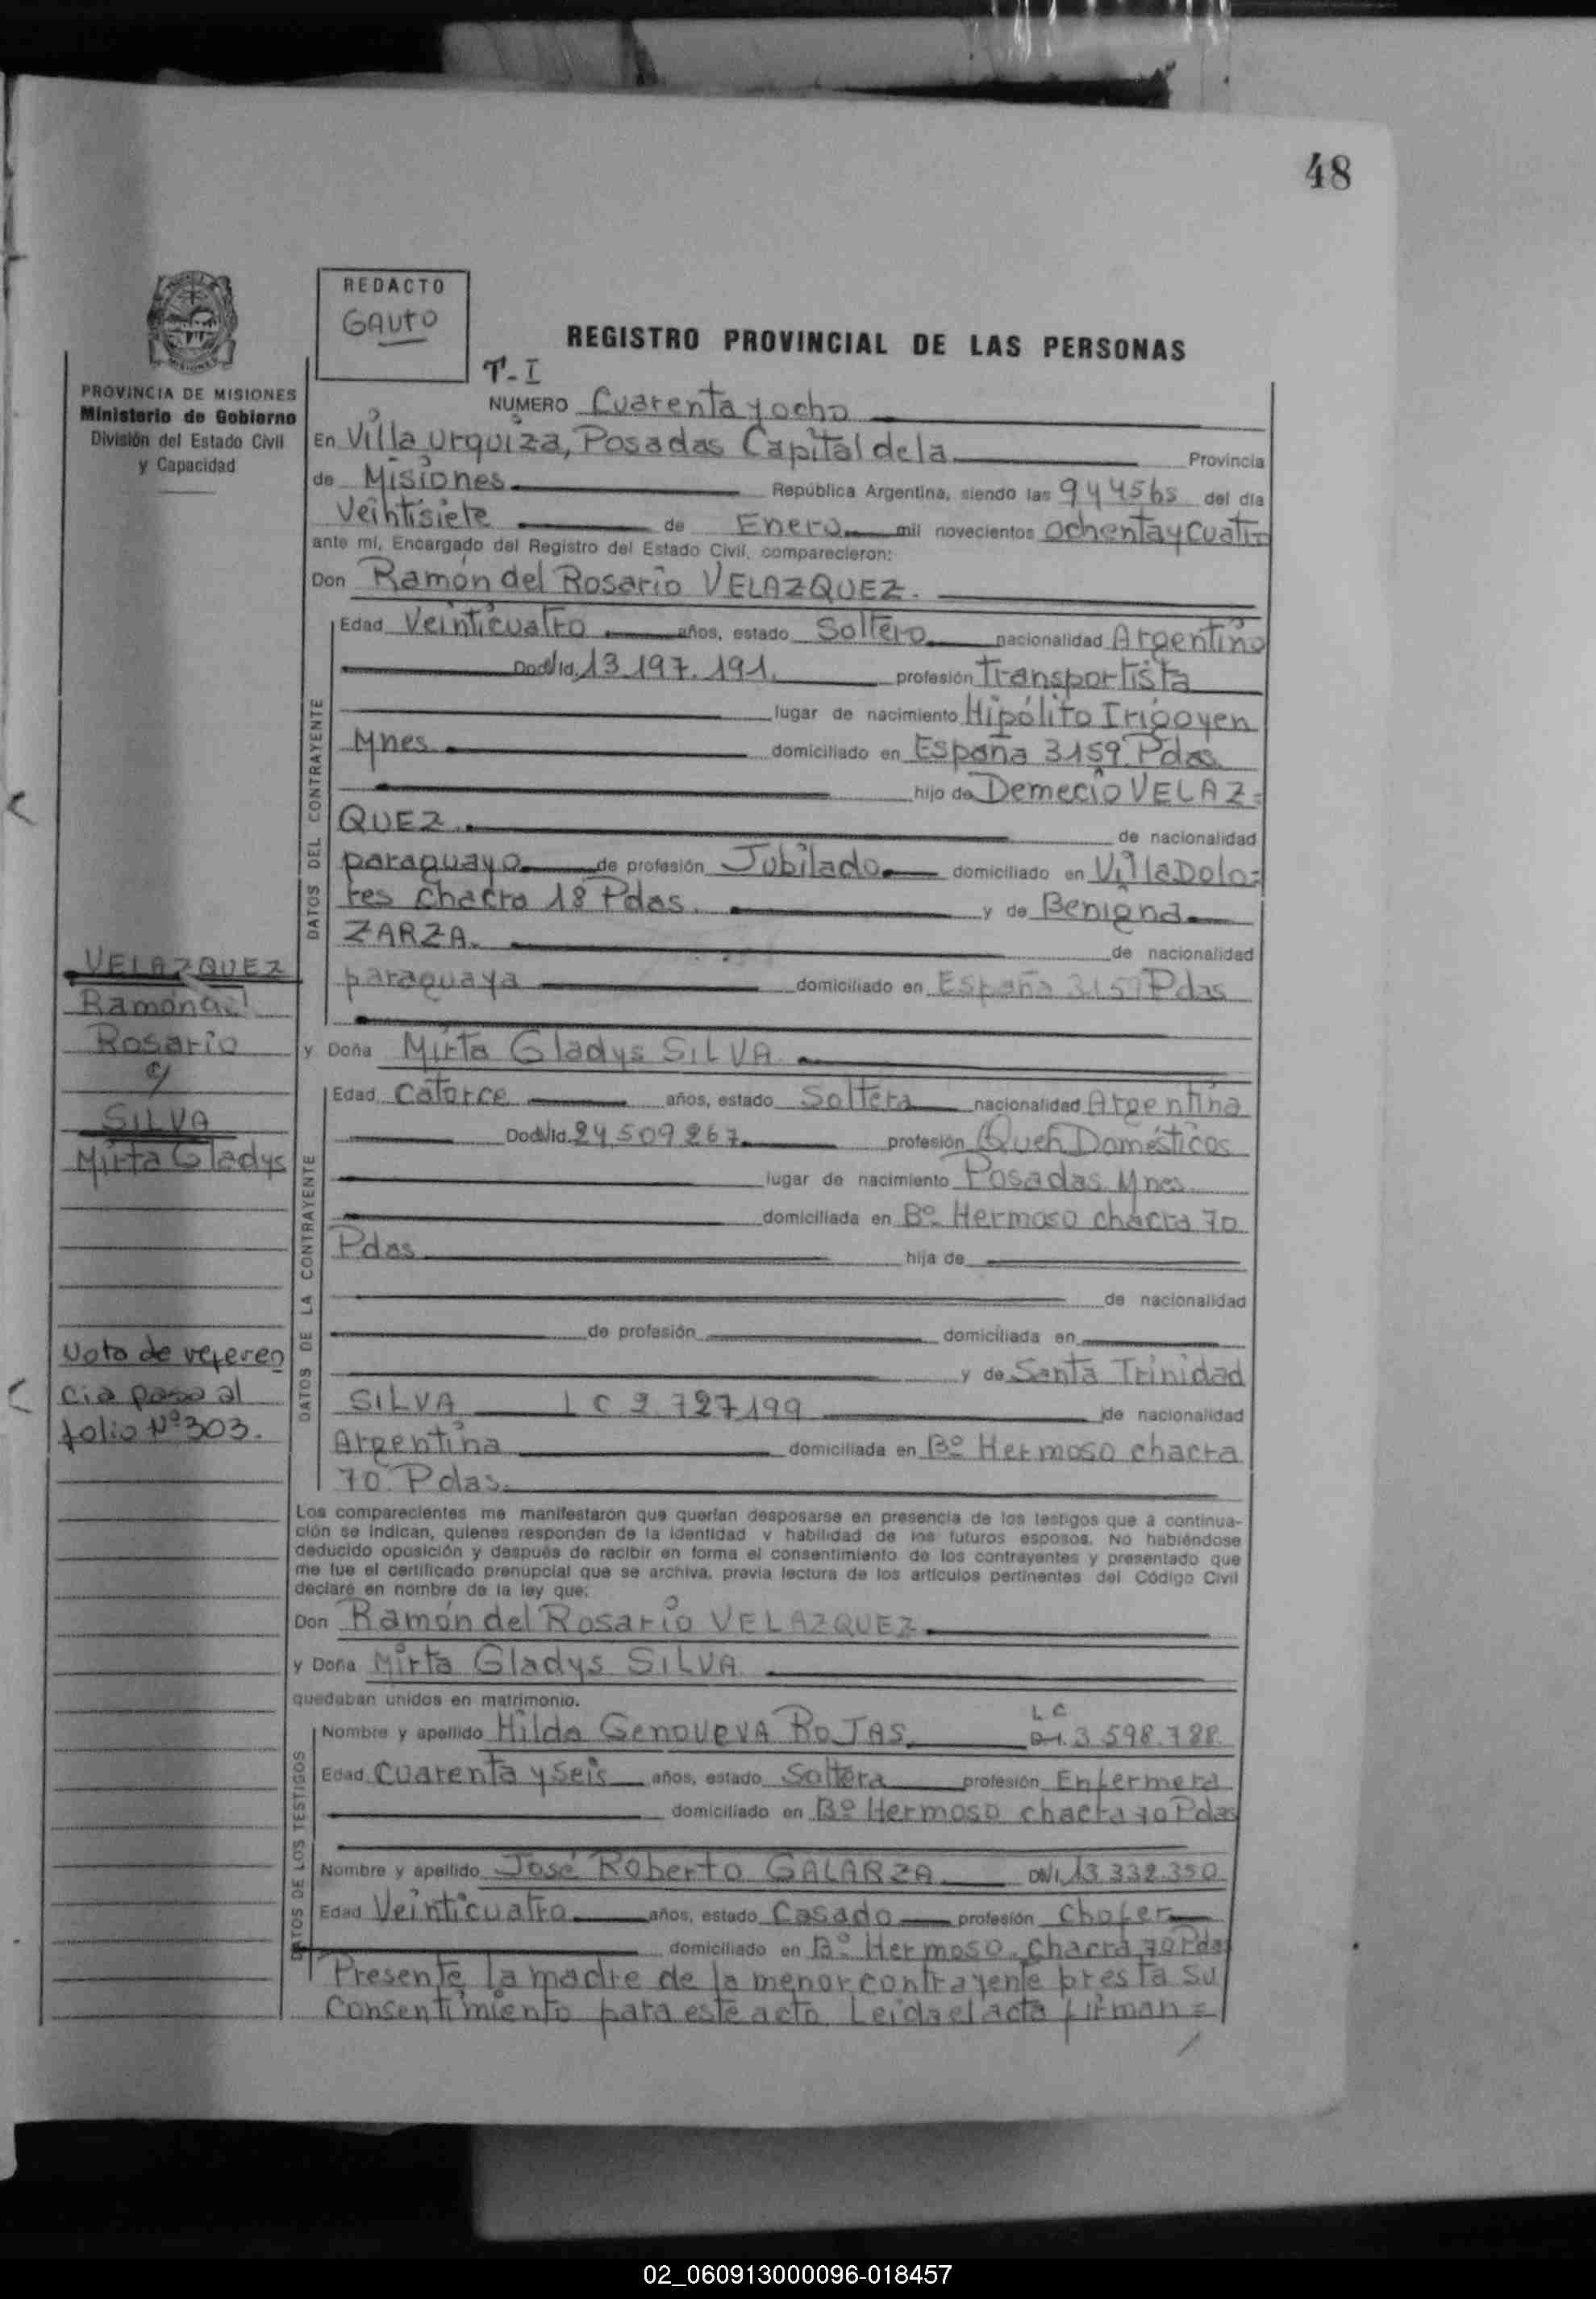 48
REDACTO
GAUTO
REGISTRO PROVINCIAL DE LAS PERSONAS
T-I
PROVINCIA DE MISIONES
Ministerio de Gobierno
División del Estado Civil
y Capacidad
NUMERO Cuarenta y ocho
En Villa Urquiza, Posadas Capital de la Provincia
de Misiones República Argentina, siendo las 9 y 45 hs del día
Veintisiete de Enero mil novecientos ochenta y cuatro
ante mí, Encargado del Registro del Estado Civil, comparecieron:
Don Ramón del Rosario VELAZQUEZ.
DATOS DEL CONTRAYENTE
Edad Veinticuatro años, estado Soltero nacionalidad Argentino
Doc. Id. 13.197.191. profesión transportista
lugar de nacimiento Hipólito Irigoyen
Mnes domiciliado en España 3159. Pdas.
hijo de Demecio VELAZ=
QUEZ. de nacionalidad
paraguayo de profesión Jubilado domiciliado en Villa Dolo=
res chacra 18 Pdas. y de Benigna
ZARZA. de nacionalidad
paraguaya domiciliado en España 3159 Pdas
y Doña Mirta Gladys SILVA.
DATOS DE LA CONTRAYENTE
Edad Catorce años, estado Soltera nacionalidad Argentina
Doc. Id. 24 509 267. profesión Queh Domésticos
lugar de nacimiento Posadas Mnes
domiciliada en Bº Hermoso chacra 70
Pdas hija de
de nacionalidad
de profesión domiciliada en
y de Santa Trinidad
SILVA L C 2.727199 de nacionalidad
Argentina domiciliada en Bº Hermoso chacra
70. Pdas.
VELAZQUEZ
Ramón del
Rosario
c/
SILVA
Mirta Gladys
Nota de referen
cia paso al
folio Nº 303.
Los comparecientes me manifestaron que querían desposarse en presencia de los testigos que a continua-
ción se indican, quienes responden de la identidad y habilidad de los futuros esposos. No habiéndose
deducido oposición y después de recibir en forma el consentimiento de los contrayentes y presentado que
me fue el certificado prenupcial que se archiva, previa lectura de los artículos pertinentes del Código Civil
declaré en nombre de la ley que:
Don Ramón del Rosario VELAZQUEZ
y Doña Mirta Gladys SILVA
quedaban unidos en matrimonio.
DATOS DE LOS TESTIGOS
L C
Nombre y apellido Hilda Genoveva ROJAS 3 598.788.
Edad Cuarenta y seis años, estado Soltera profesión Enfermera
domiciliado en Bº Hermoso chacra 70 Pdas
Nombre y apellido José Roberto GALARZA DNI. 13 332.350
Edad Veinticuatro años, estado Casado profesión Chofer
domiciliado en Bº Hermoso. Chacra 70 Pdas
Presente la madre de la menor contrayente presta su
Consentimiento para este acto. Leída el acta firman =
02_060913000096-018457